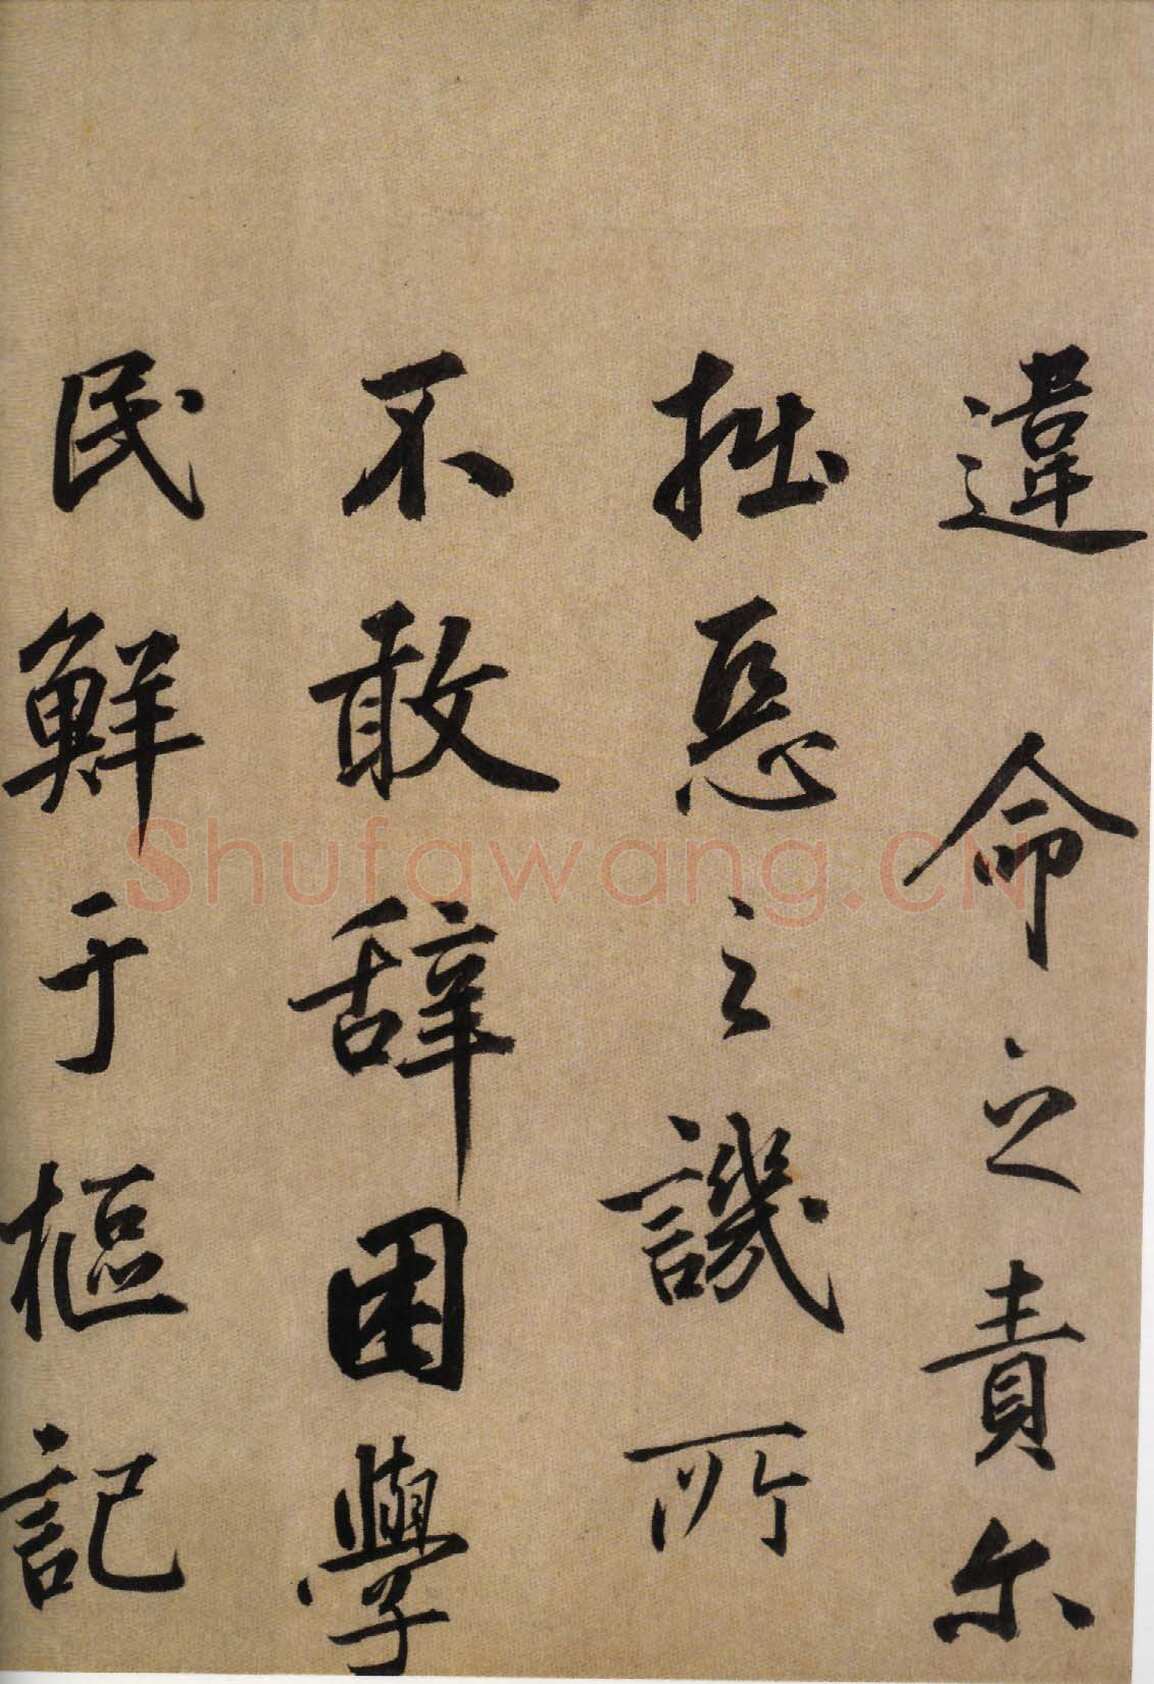 違命之責尔
拙惡之譏所
不敢辞困學
民鮮于樞記
Shufawang.CN